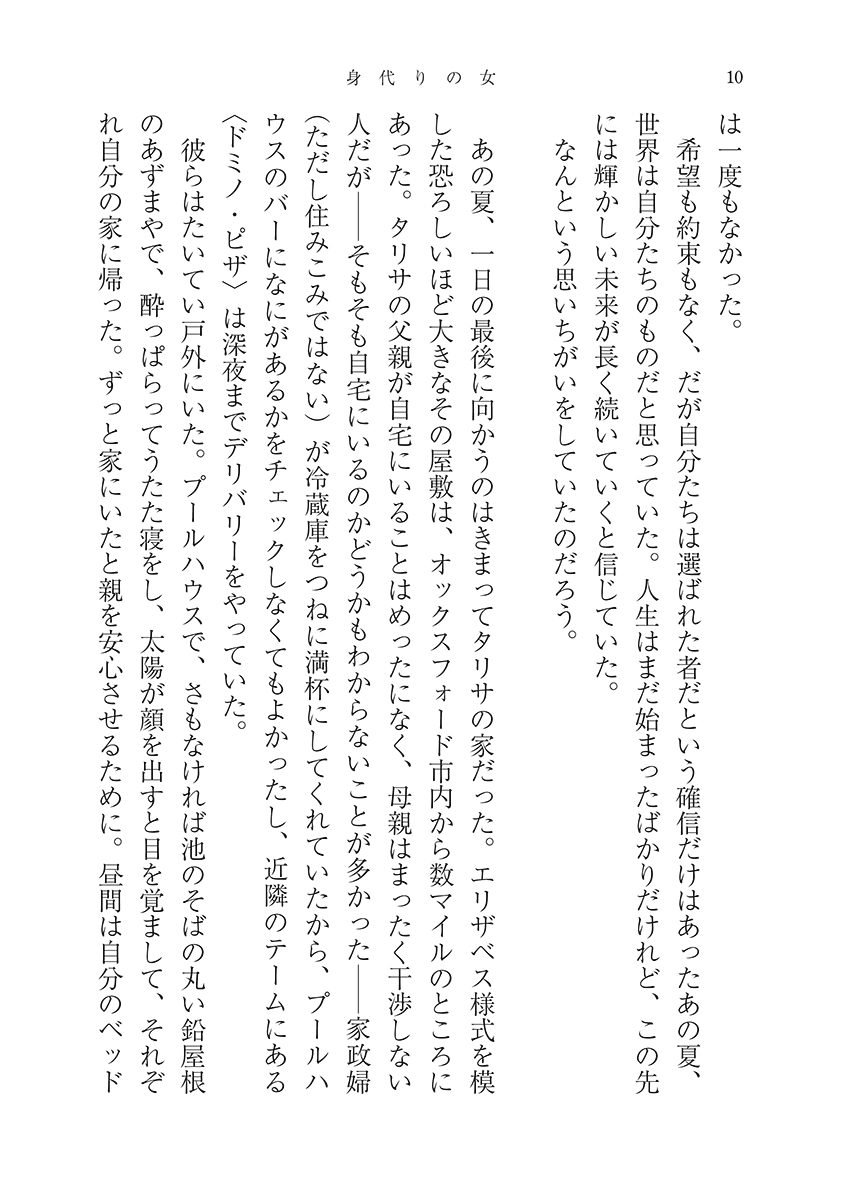 10
身代りの女
は一度もなかった。
希望も約束もなく、だが自分たちは選ばれた者だという確信だけはあったあの夏、
世界は自分たちのものだと思っていた。人生はまだ始まったばかりだけれど、この先
には輝かしい未来が長く続いていくと信じていた。
なんという思いちがいをしていたのだろう。
あの夏、一日の最後に向かうのはきまってタリサの家だった。エリザベス様式を模
した恐ろしいほど大きなその屋敷は、オックスフォード市内から数マイルのところに
あった。タリサの父親が自宅にいることはめったになく、母親はまったく干渉しない
人だが――そもそも自宅にいるのかどうかもわからないことが多かった――家政婦
(ただし住みこみではない)が冷蔵庫をつねに満杯にしてくれていたから、プールハ
ウスのバーになにがあるかをチェックしなくてもよかったし、近隣のテームにある
〈ドミノ・ピザ〉は深夜までデリバリーをやっていた。
彼らはたいてい戸外にいた。プールハウスで、さもなければ池のそばの丸い鉛屋根
のあずまやで、酔っぱらってうたた寝をし、太陽が顔を出すと目を覚まして、それぞ
れ自分の家に帰った。ずっと家にいたと親を安心させるために。昼間は自分のベッド